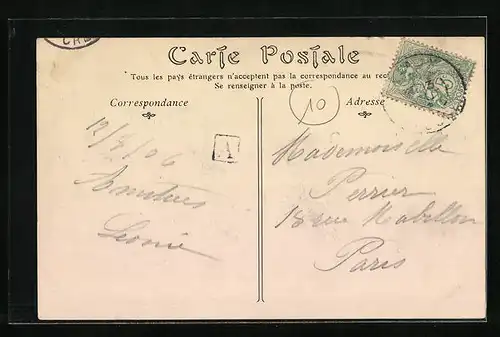 Carte Postale
Tous les pays étrangers n'acceptent pas la correspondance au rec
Se renseigner à la poste.
Correspondance
Adresse
10
A
12/3/06
Amitiés
Léonie
Mademoiselle
Perrier
18 rue Mabillon
Paris